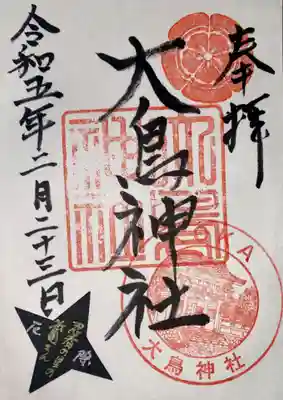 奉拝
大鳥神社
令和五年二月二十三日
大鳥神社